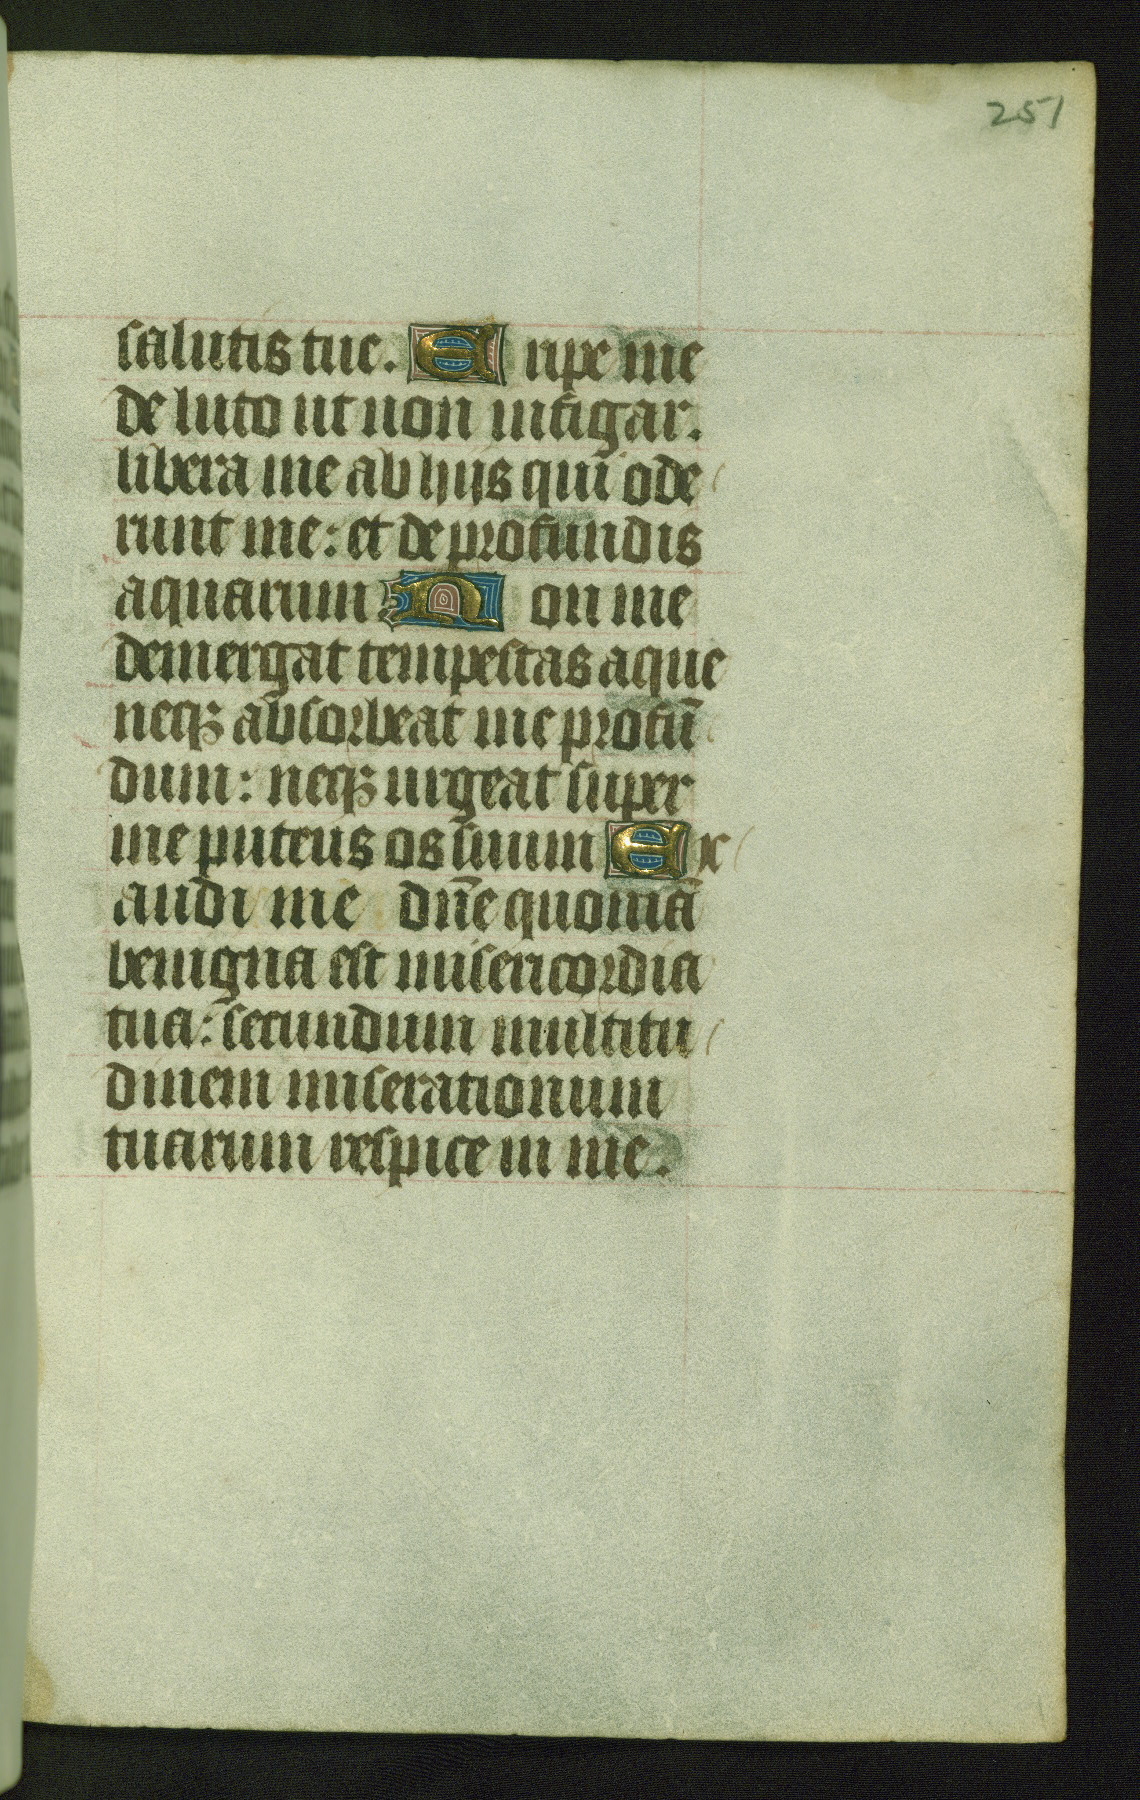 251
salutis tue. Eripe me
de luto ut non infigar.
libera me ab hijs qui ode
runt me: et de profundis
aquarum Non me
demergat tempestas aque
neqꝫ absorbeat me profū
dum: neqꝫ urgeat super
me puteus os suum Ex
audi me dn̄e quoniā
benigna est misericordia
tua: secundum multitu
dinem miserationum
tuarum respice in me.